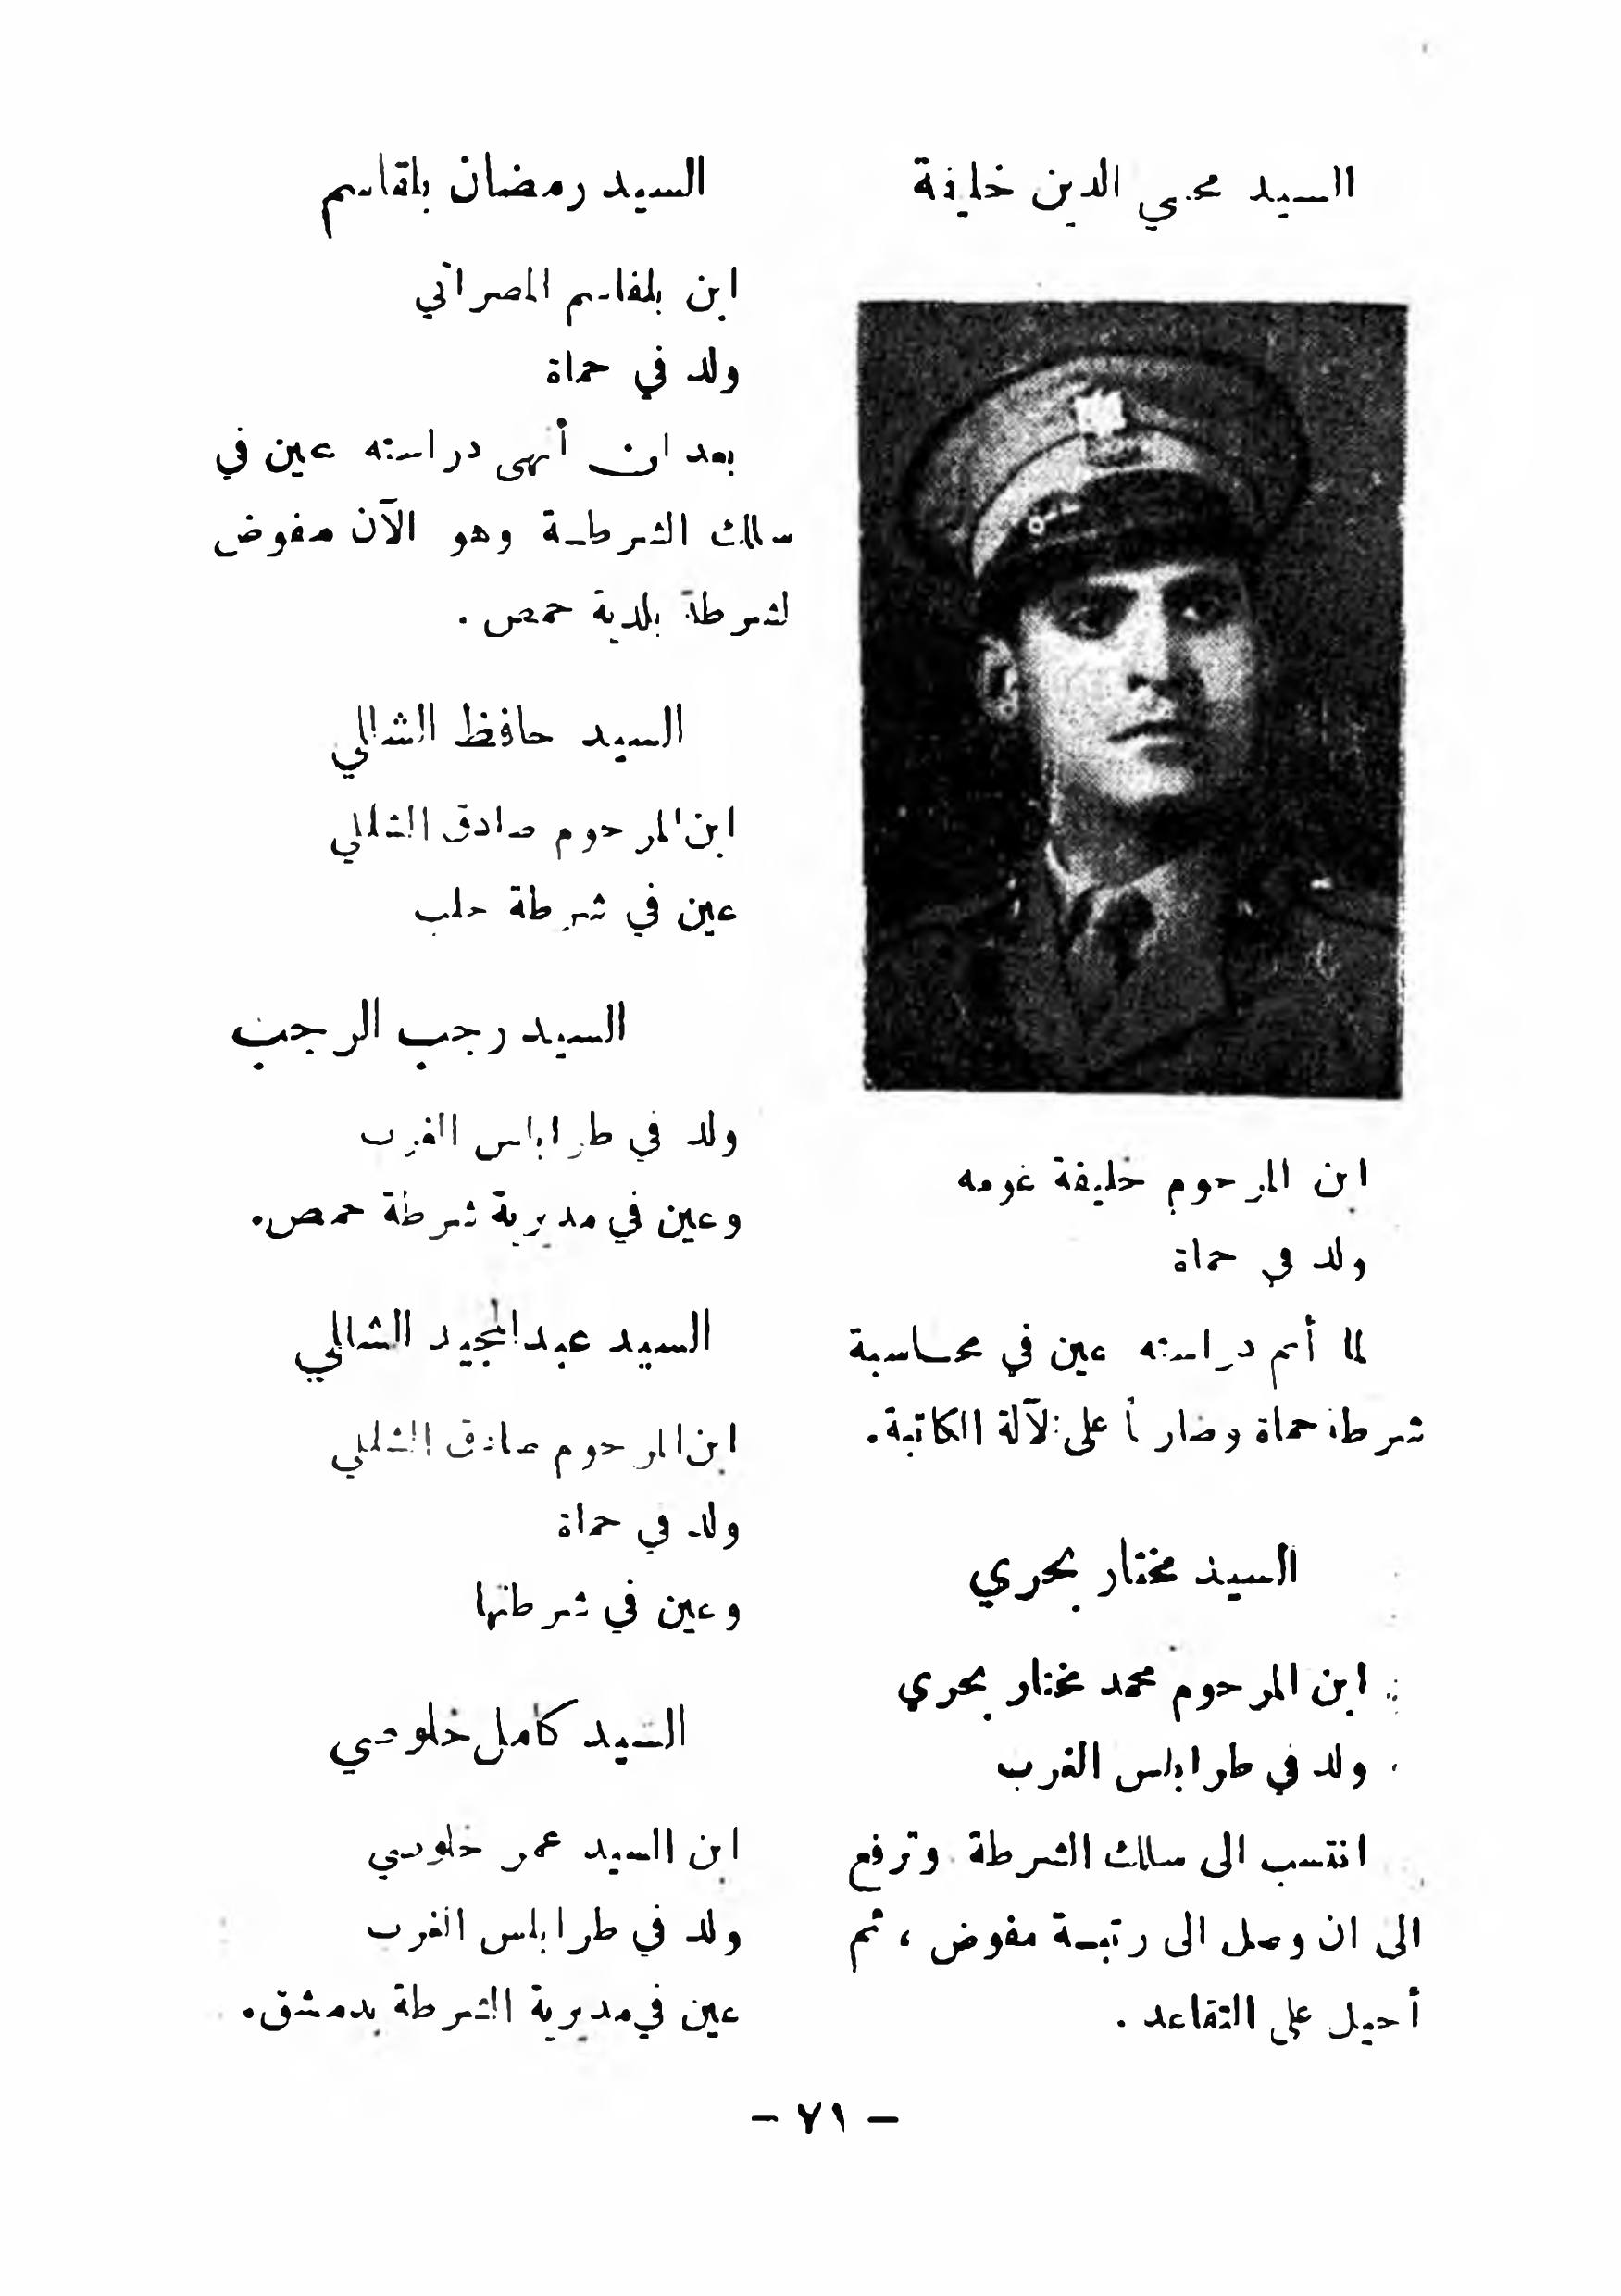 السيد محيي الدين خليفة
ابن المرحوم خليفة غومه
ولد في حماة
لما أتم دراسته عين في محاسبة
شرطة حماة وضارباً على الآلة الكاتبة.
السيد مختار بحري
ابن المرحوم محمد مختار بحري
ولد في طرابلس الغرب
انتسب الى سلك الشرطة وترفع
الى ان وصل الى رتبة مفوض ، ثم
أحيل على التقاعد .
السيد رمضان بلقاسم
ابن بلقاسم المصراتي
ولد في حماة
بعد ان أنهى دراسته عين في
سلك الشرطة وهو الآن مفوض
لشرطة بلدية حمص .
السيد حافظ الشللي
ابن المرحوم صادق الشللي
عين في شرطة حلب
السيد رجب الرجب
ولد في طرابلس الغرب
وعين في مديرية شرطة حمص.
السيد عبدالمجيد الشللي
ابن المرحوم صادق الشللي
ولد في حماة
وعين في شرطتها
السيد كامل خلوصي
ابن السيد عمر خلوصي
ولد في طرابلس الغرب
عين في مديرية الشرطة بدمشق.
- ٧١ -